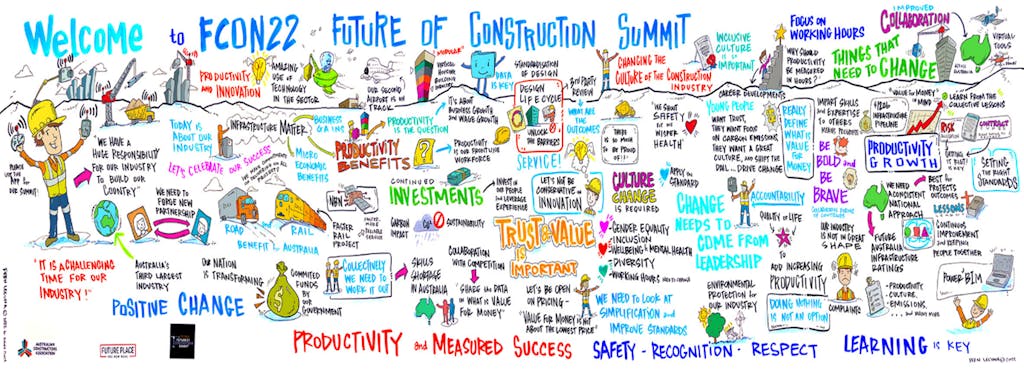 WELCOME to FCON22 FUTURE OF CONSTRUCTION SUMMIT
PRODUCTIVITY
AND INNOVATION
AMAZING
USE OF
TECHNOLOGY
IN THE SECTOR
OUR SECOND
AIRPORT IS ON
TRACK
"MODULAR"
DATA
IS KEY
STANDARDISATION
OF DESIGN
DESIGN
LIFE CYCLE
UNLOCK
THE BARRIERS
3rd PARTY
REVIEW
CHANGING THE
CULTURE OF THE CONSTRUCTION
INDUSTRY
INCLUSIVE
CULTURE
IS SO
IMPORTANT
FOCUS ON
WORKING HOURS
WHY SHOULD
PRODUCTIVITY
BE MEASURED
IN HOURS?
IMPROVED
COLLABORATION
THINGS THAT
NEED TO CHANGE
VIRTUAL
TOOLS
PLEASE
USE THE
APP for
OUR SUMMIT!
"WE HAVE A
HUGE RESPONSIBILITY
FOR OUR INDUSTRY
TO BUILD OUR
COUNTRY"
TODAY IS
ABOUT OUR
INDUSTRY
LET'S CELEBRATE OUR SUCCESS
INFRASTRUCTURE MATTERS
BUSINESS
GAINS
MICRO
ECONOMIC
BENEFITS
PRODUCTIVITY
BENEFITS
IT'S ABOUT
BUSINESS GROWTH
AND WAGE GROWTH
PRODUCTIVITY
IS THE QUESTION
?
PRODUCTIVITY IS
OUR FRONTLINE
WORKFORCE
WHAT ARE
THE
OUTCOMES
SERVICE!
THERE IS
SO MUCH
TO BE
PROUD
OF!!
"WE SHOUT
SAFETY
BUT WE
WHISPER
HEALTH"
CAREER DEVELOPMENT
YOUNG PEOPLE
WANT TRUST,
THEY WANT FOCUS
ON CARBON EMISSIONS
THEY WANT A GREAT
CULTURE, AND SHIFTS THE
DIAL... DRIVE CHANGE
REALLY
DEFINE
WHAT IS
VALUE
FOR
MONEY
IMPART SKILLS
and EXPERTISE
TO OTHERS
BE
BOLD and
BE
BRAVE
"VALUE for MONEY"
IN MIND
LEARN FROM THE
COLLECTIVE LESSONS
INFRASTRUCTURE
PIPELINE
PRODUCTIVITY
GROWTH
RISK
CONTRACT
SETTING
THE RIGHT
STANDARDS
WE NEED TO
FORGE NEW
PARTNERSHIP
ROAD
RAIL
BENEFIT AUSTRALIA
NBN
FASTER
RAIL
PROJECT
CONTINUED
INVESTMENTS
CARBON
IMPACT
CO2
SUSTAINABILITY
INVEST IN OUR
PEOPLE AND
LEVERAGE EXPERIENCE
LET'S NOT BE
CONSERVATIVE ON
INNOVATION
TRUST & VALUE
IS
IMPORTANT
CULTURE
CHANGE
IS REQUIRED
APPLY THE
STANDARD
GENDER EQUALITY
INCLUSION
WELLBEING & MENTAL HEALTH
DIVERSITY
WORKING HOURS
CHANGE
NEEDS TO
COME FROM
LEADERSHIP
ACCOUNTABILITY
QUALITY OF LIFE
OUR INDUSTRY
IS NOT IN GREAT
SHAPE
WE NEED A
CONSISTENT
NATIONAL
APPROACH
BEST for
PROJECTS
OUTCOMES
LESSONS
FUTURE
AUSTRALIA
INFRASTRUCTURE
RATINGS
CONTINUOUS
IMPROVEMENT
and KEEPING
PEOPLE TOGETHER
"IT IS A CHALLENGING
TIME FOR OUR
INDUSTRY!"
AUSTRALIA'S
THIRD LARGEST
INDUSTRY
OUR NATION
IS TRANSFORMING
$
COMMITTED
FUNDS
BY OUR
GOVERNMENT
COLLECTIVELY
WE NEED TO
WORK IT OUT
SKILLS
SHORTAGE
IN AUSTRALIA
COLLABORATION
WITH COMPETITION
"SHARE the DATA
on WHAT is VALUE
FOR MONEY"
LET'S BE OPEN
ON PRICING -
"VALUE FOR MONEY IS NOT
ABOUT THE LOWEST PRICE"
WE NEED TO LOOK AT
SIMPLIFICATION and
IMPROVE STANDARDS
ENVIRONMENTAL
PROTECTION for OUR
INDUSTRY
TO
ADD INCREASING
PRODUCTIVITY
DOING NOTHING
IS NOT AN OPTION
COMPLAINTS
PRODUCTIVITY,
CULTURE,
EMISSIONS,
POWER BI™
POSITIVE CHANGE
AUSTRALIAN
CONSTRUCTORS
ASSOCIATION
FUTURE PLACE
PRODUCTIVITY and MEASURED SUCCESS
SAFETY - RECOGNITION - RESPECT
LEARNING is KEY